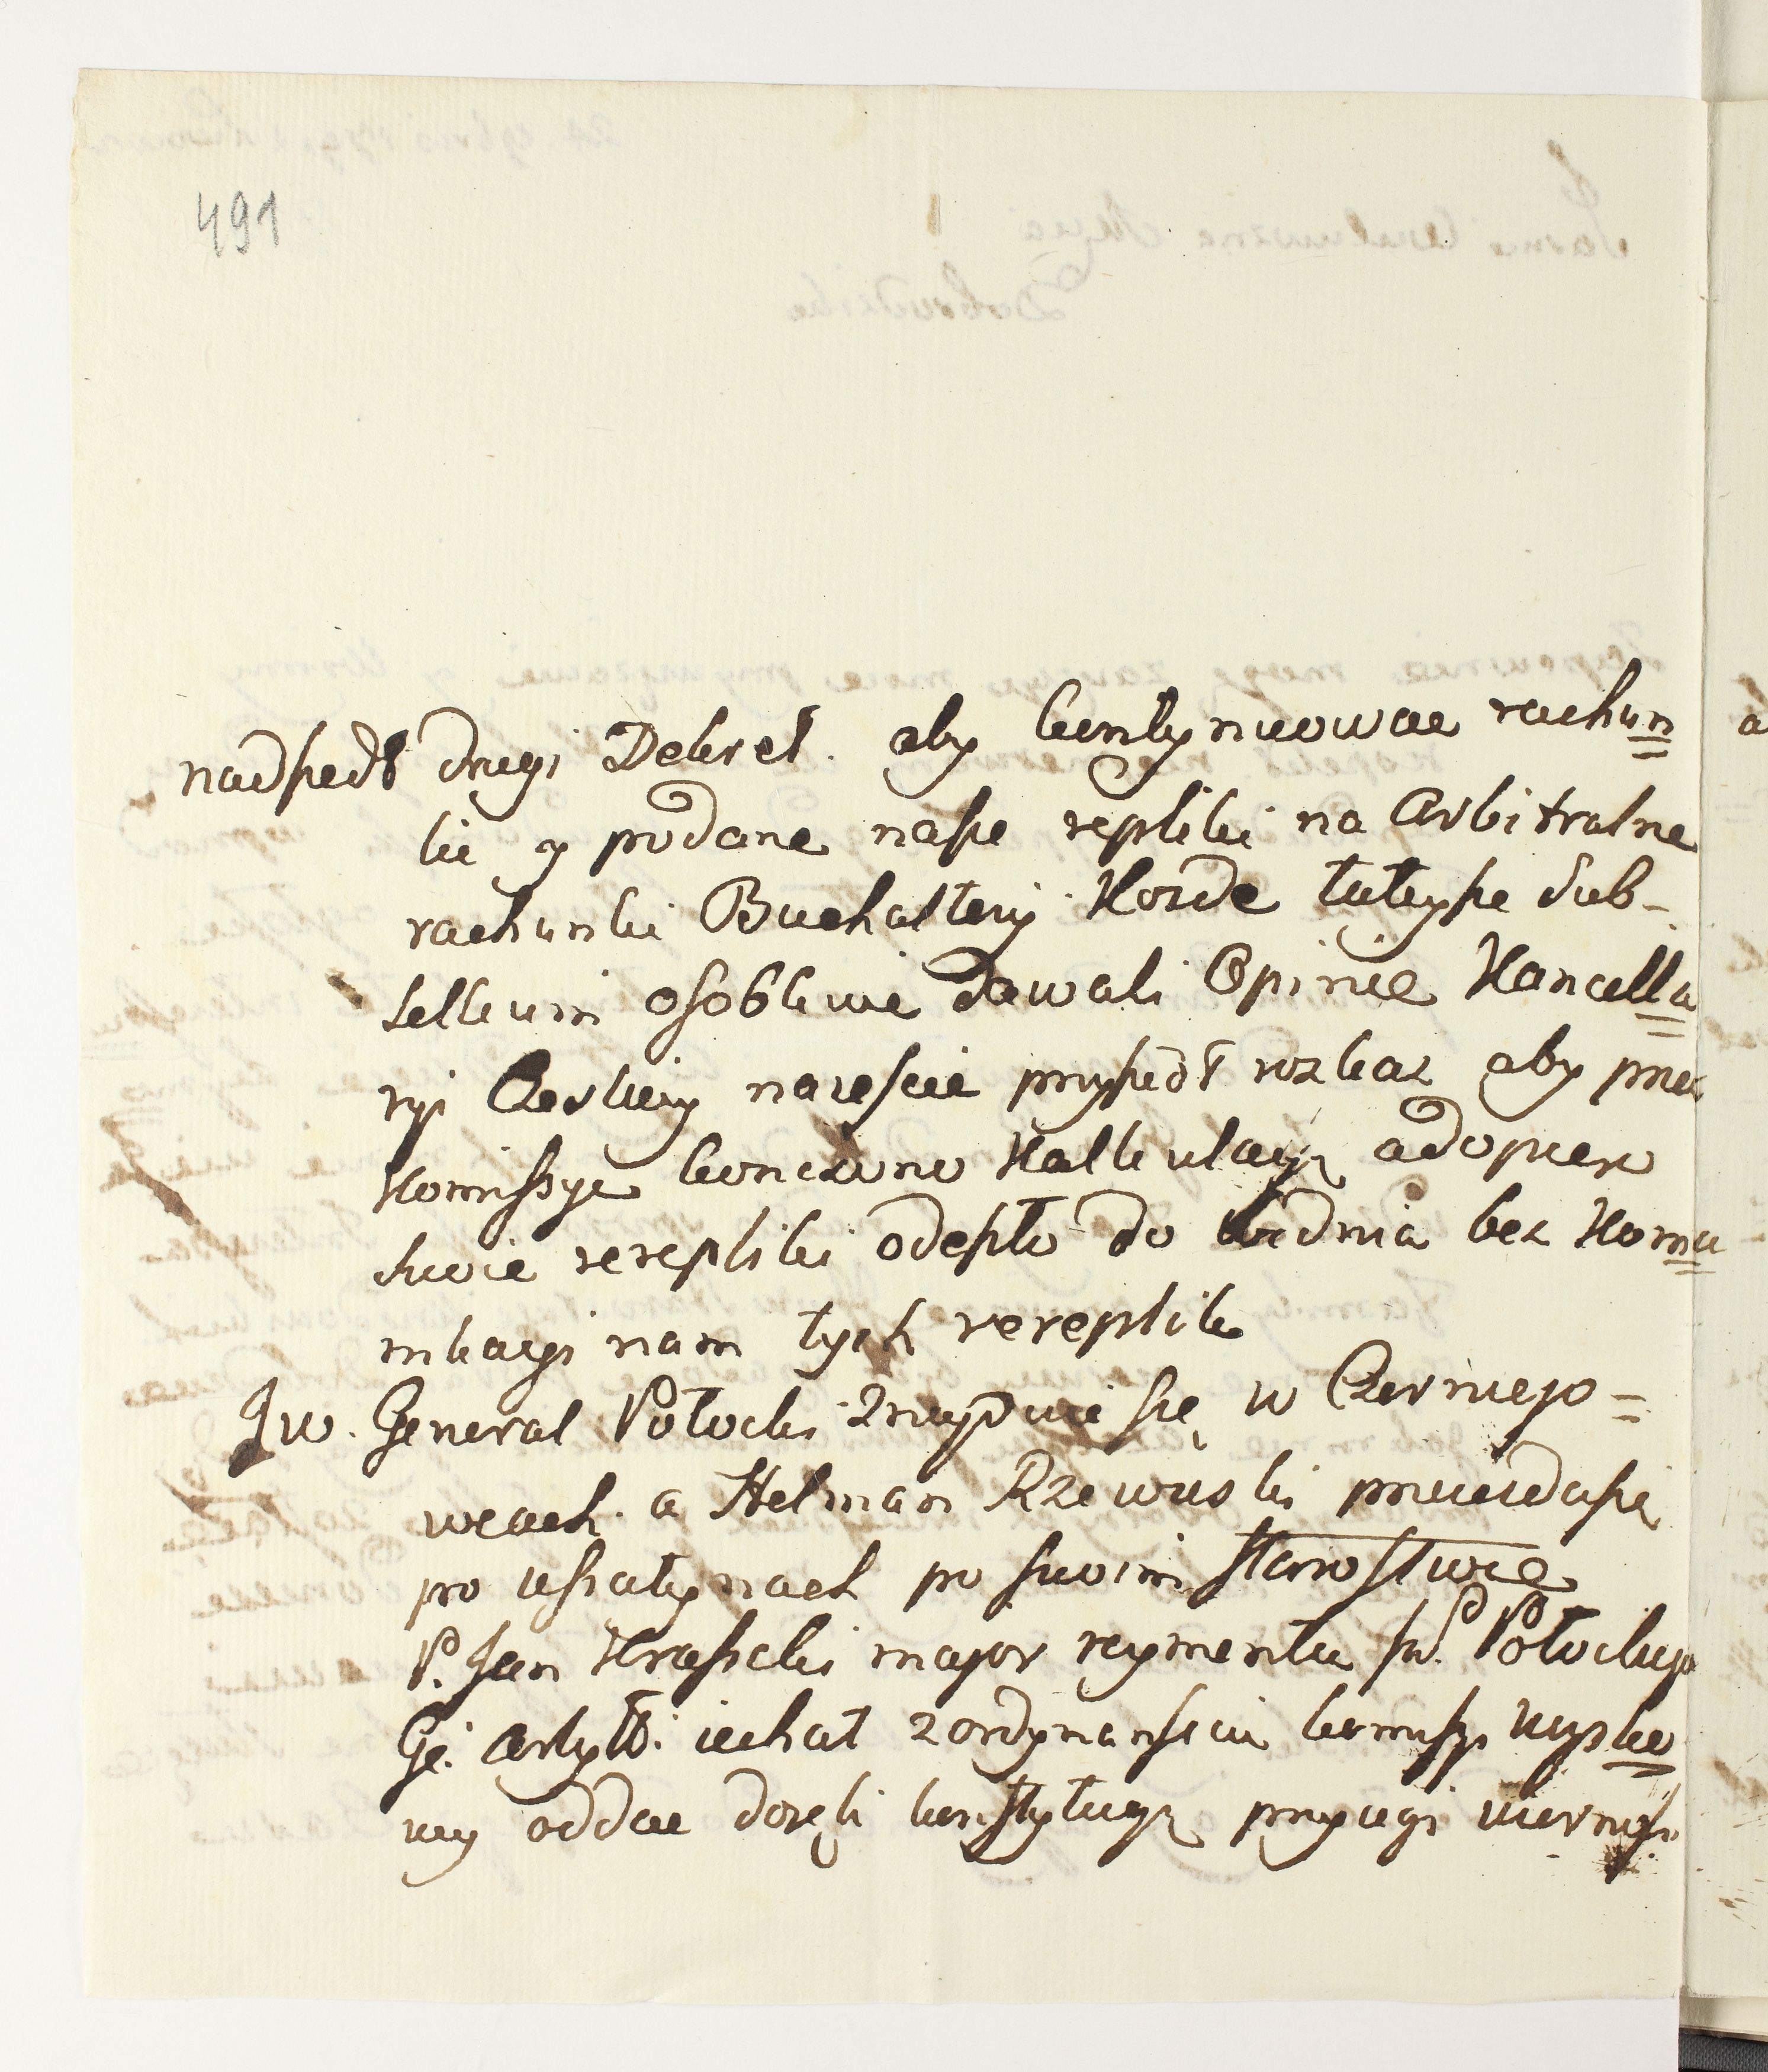 491
nadszedł drugi Dekret. aby kontynuowac rachun
ki y podane nasze repliki na Arbitralne
rachunki Buchalteryi Horde tuteysze Sub-
selleum osobliwie dawali Opinie Kancella
ryi nareszcie przyszedł rozkaz aby przez
Komissye konczono Kalkulacyą adopiero
swoie rerepliki odeszło do Widnia bez Komu
nikacyi nam tych rereplik
Jw. General Potocki znayduie się w Czerniejo=
wcach. a Hetman Rzewuski przeieżdasię
po uszatynach po swoim Starostwie
P. Jan Kraszcki major regmentu jw. Potockiego
Ge. Artyll: iechał zordynansem komissyi
oddac konstytucyą przysięgi wiernosci